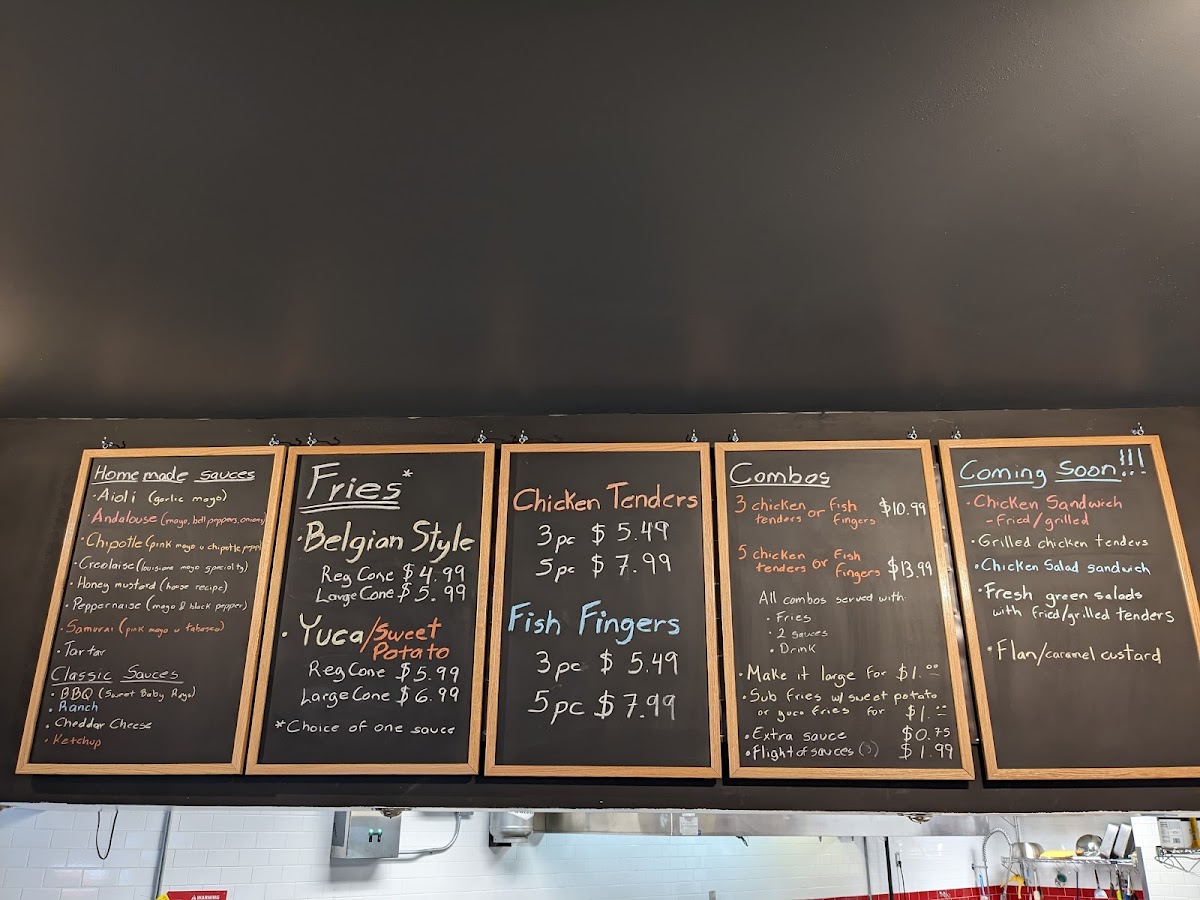 Homemade sauces
· Aioli (garlic mayo)
· Andalouse (mayo, bell peppers, onions)
· Chipotle (pink mayo w chipotle pepper)
· Creolaise (louisiana mayo specialty)
· Honey mustard (house recipe)
· Peppernaise (mayo & black pepper)
· Samurai (pink mayo w tabasco)
· Tartar
Classic Sauces
· BBQ (Sweet Baby Rays)
· Ranch
· Cheddar Cheese
· Ketchup
Fries*
· Belgian Style
Reg Cone $4.99
Large Cone $5.99
· Yuca/Sweet
Potato
Reg Cone $5.99
Large Cone $6.99
*Choice of one sauce
Chicken Tenders
3pc $5.49
5pc $7.99
Fish Fingers
3pc $5.49
5pc $7.99
Combos
3 chicken tenders or fish fingers $10.99
5 chicken tenders or Fish Fingers $13.99
All combos served with:
· Fries
· 2 sauces
· Drink
· Make it large for $1.00
· Sub fries w/ sweet potato
or yuca fries for $1.00
· Extra sauce $0.75
· Flight of sauces (3) $1.99
Coming Soon!!!
· Chicken Sandwich
- fried/grilled
· Grilled chicken tenders
· Chicken Salad sandwich
· Fresh green salads
with fried/grilled tenders
· Flan/caramel custard
WARNING